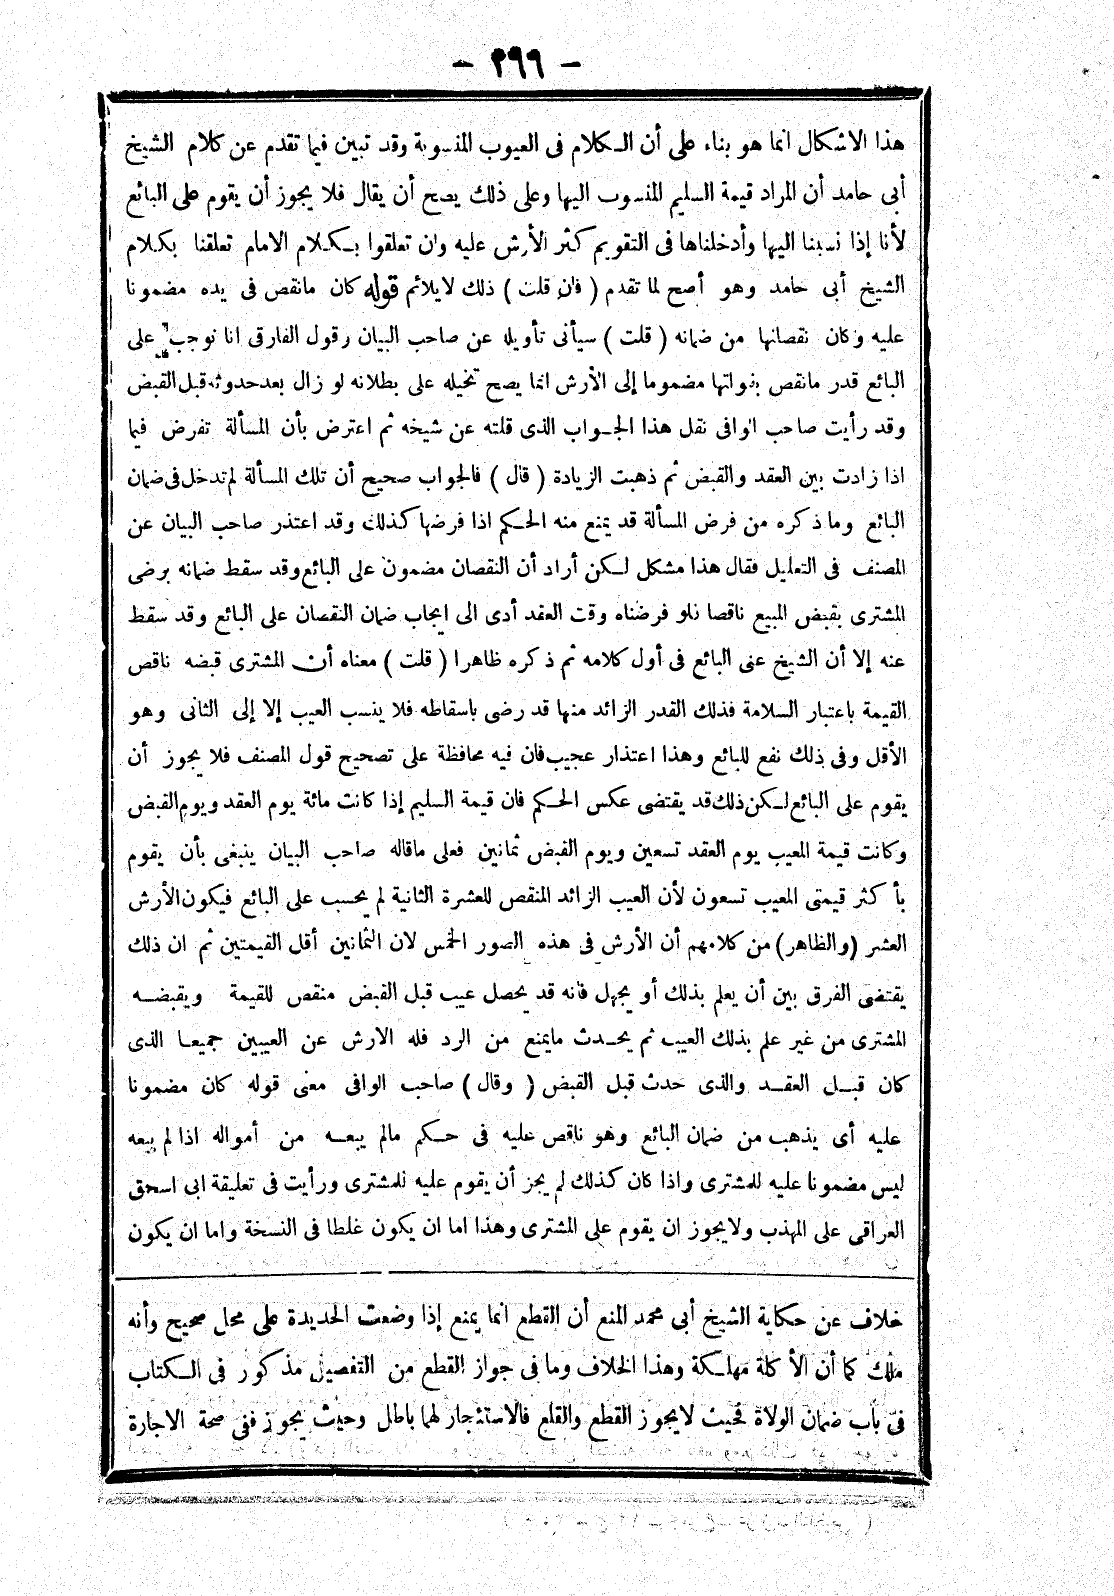 - ٢٩٩ -
هذا الاشكال انما هو بناء على أن الكلام فى العيوب المنسوبة وقد تبين فيما تقدم عن كلام الشيخ
أبى حامد أن المراد قيمة السليم المنسوب اليها وعلى ذلك يصح أن يقال فلا يجوز أن يقوم على البائع
لأنا إذا نسبنا اليها وأدخلناها فى التقويم كثر الأرش عليه وان تعلقوا بكلام الامام تعلقنا بكلام
الشيخ أبى حامد وهو أصح لما تقدم ( فان قلت ) ذلك لايلائم قوله كان مانقص فى يده مضمونا
عليه وكان نقصانها من ضمانه ( قلت ) سيأتى تأويله عن صاحب البيان وقول الفارقى انا نوجب على
البائع قدر مانقص بفواتها مضموما إلى الأرش انما يصح تخيله على بطلانه لو زال بعد حدوثه قبل القبض
وقد رأيت صاحب الوافى نقل هذا الجواب الذى قلته عن شيخه ثم اعترض بأن المسألة تفرض فيما
اذا زادت بين العقد والقبض ثم ذهبت الزيادة ( قال ) فالجواب صحيح أن تلك المسألة لم تدخل فى ضمان
البائع وما ذكره من فرض المسألة قد يمنع منه الحكم اذا فرضها كذلك وقد اعتذر صاحب البيان عن
المصنف فى التعليل فقال هذا مشكل لكن أراد أن النقصان مضمون على البائع وقد سقط ضمانه برضى
المشترى بقبض المبيع ناقصا فلو فرضناه وقت العقد أدى الى ايجاب ضمان النقصان على البائع وقد سقط
عنه إلا أن الشيخ عنى البائع فى أول كلامه ثم ذكره ظاهرا ( قلت ) معناه أن المشترى قبضه ناقص
القيمة باعتبار السلامة فذلك القدر الزائد منها قد رضى باسقاطه فلا ينسب العيب إلا إلى الثانى وهو
الأقل وفى ذلك نفع للبائع وهذا اعتذار عجيب فان فيه محافظة على تصحيح قول المصنف فلا يجوز أن
يقوم على البائع لكن ذلك قد يقتضى عكس الحكم فان قيمة السليم إذا كانت مائة يوم العقد ويوم القبض
وكانت قيمة المعيب يوم العقد تسعين ويوم القبض ثمانين فعلى ماقاله صاحب البيان ينبغى بأن يقوم
بأكثر قيمتى المعيب تسعون لأن العيب الزائد المنقص للعشرة الثانية لم يحسب على البائع فيكون الأرش
العشر (والظاهر) من كلامهم أن الأرش فى هذه الصور الخمس لان الثمانين أقل القيمتين ثم ان ذلك
يقتضى الفرق بين أن يعلم بذلك أو يجهل فانه قد يحصل عيب قبل القبض منقص للقيمة ويقبضه
المشترى من غير علم بذلك العيب ثم يحدث مايمنع من الرد فله الارش عن العيبين جميعا الذى
كان قبل العقد والذى حدث قبل القبض ( وقال ) صاحب الوافى معنى قوله كان مضمونا
عليه أى يذهب من ضمان البائع وهو ناقص عليه فى حكم مالم يبعه من أمواله اذا لم يبعه
ليس مضمونا عليه للمشترى واذا كان كذلك لم يجز أن يقوم عليه للمشترى ورأيت فى تعليقة ابى اسحق
العراقى على المهذب ولايجوز ان يقوم على المشترى وهذا اما ان يكون غلطا فى النسخة واما ان يكون
خلاف عن حكاية الشيخ أبى محمد المنع أن القطع انما يمنع إذا وضعت الحديدة على محل صحيح وأنه
ملك كما أن الأكلة مهلكة وهذا الخلاف وما فى جواز القطع من التفصيل مذكور فى الكتاب
فى باب ضمان الولاة فحيث لايجوز القطع والقلع فالاستئجار لهما باطل وحيث يجوز ففى صحة الاجارة